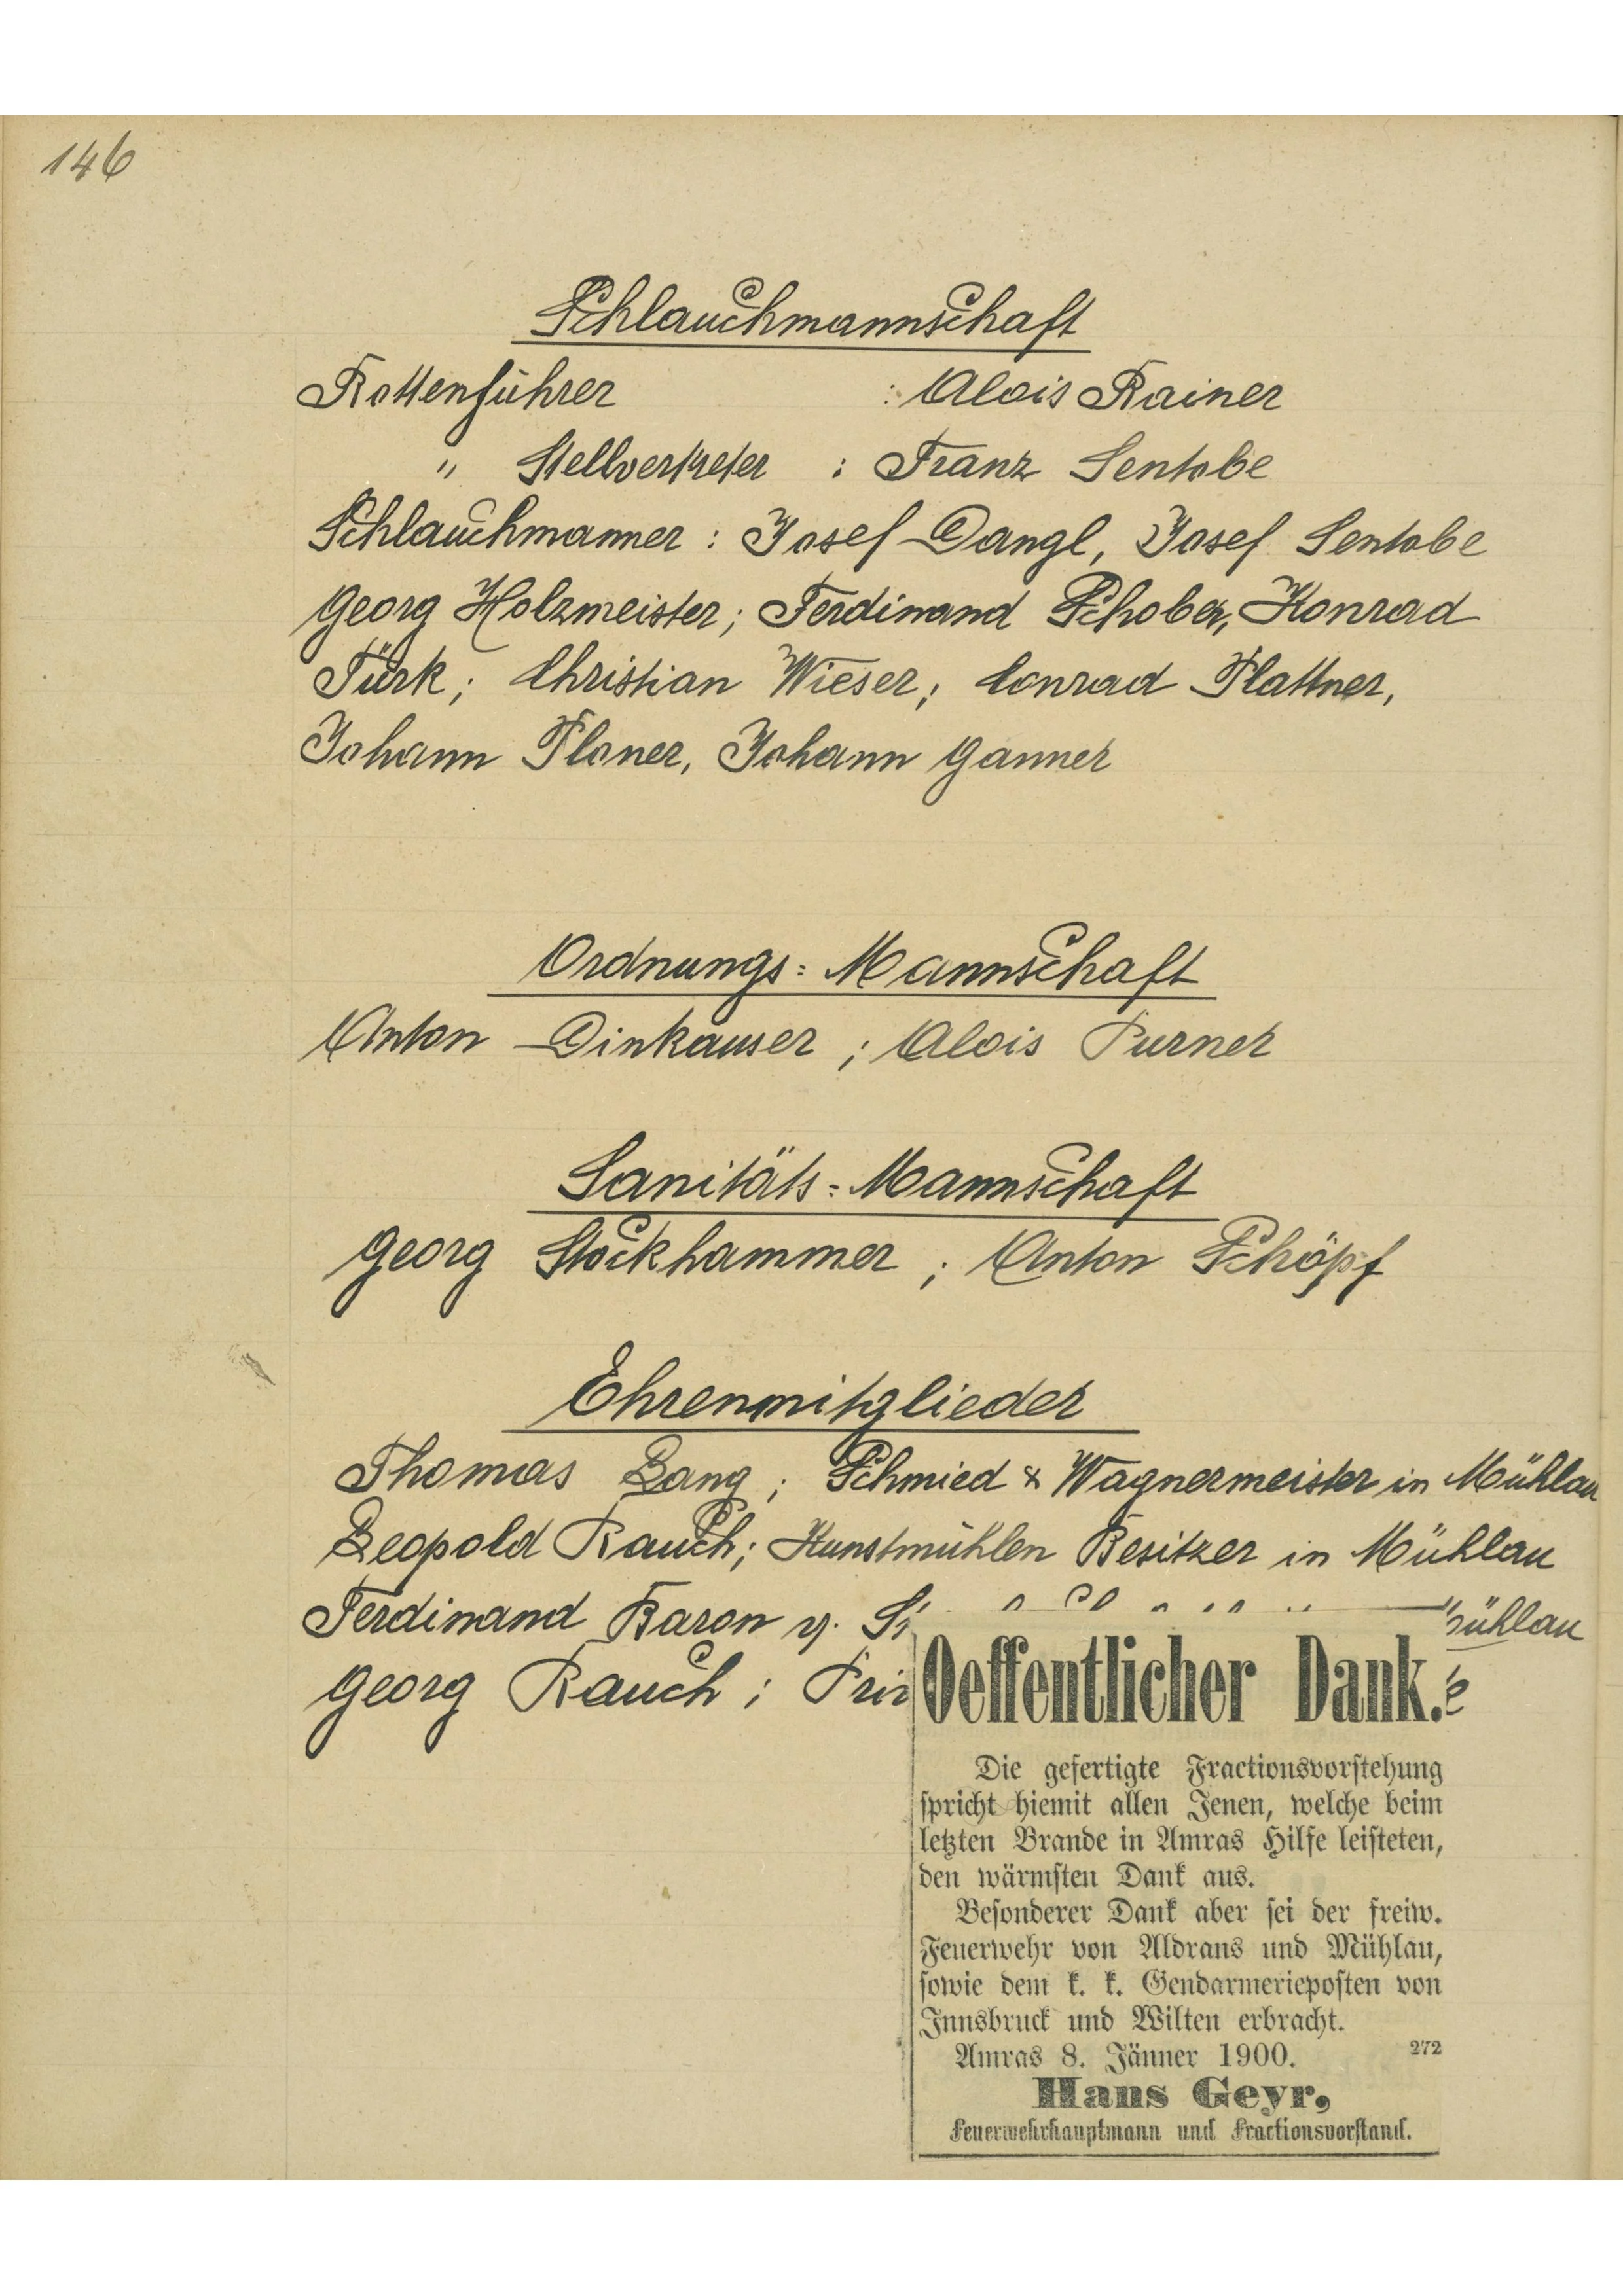 146
Schlauchmannschaft
Rottenführer : Alois Rainer
" Stellvertreter : Franz Sentobe
Schlauchmanner : Josef Dangl, Josef Sentobe
Georg Holzmeister; Ferdinand Schober, Konrad
Türk; Christian Wieser; Conrad Plattner,
Johann Ploner, Johann Ganner
Ordnungs= Mannschaft
Anton Dinkauser ; Alois Purner
Sanitäts= Mannschaft
Georg Stockhammer ; Anton Schöpf
Ehrenmitglieder
Thomas Lang ; Schmied & Wagnermeister in Mühlau
Leopold Rauch; Kunstmühlen Besitzer in Mühlau
Ferdinand Baron v.
Georg Rauch ;
Oeffentlicher Dank.
Die gefertigte Fractionsvorstehung
spricht hiemit allen Jenen, welche beim
letzten Brande in Amras Hilfe leisteten,
den wärmsten Dank aus.
Besonderer Dank aber sei der freiw.
Feuerwehr von Aldrans und Mühlau,
sowie dem k. k. Gendarmerieposten von
Innsbruck und Wilten erbracht.
Amras 8. Jänner 1900. 272
Hans Geyr,
Feuerwehrhauptmann und Fractionsvorstand.